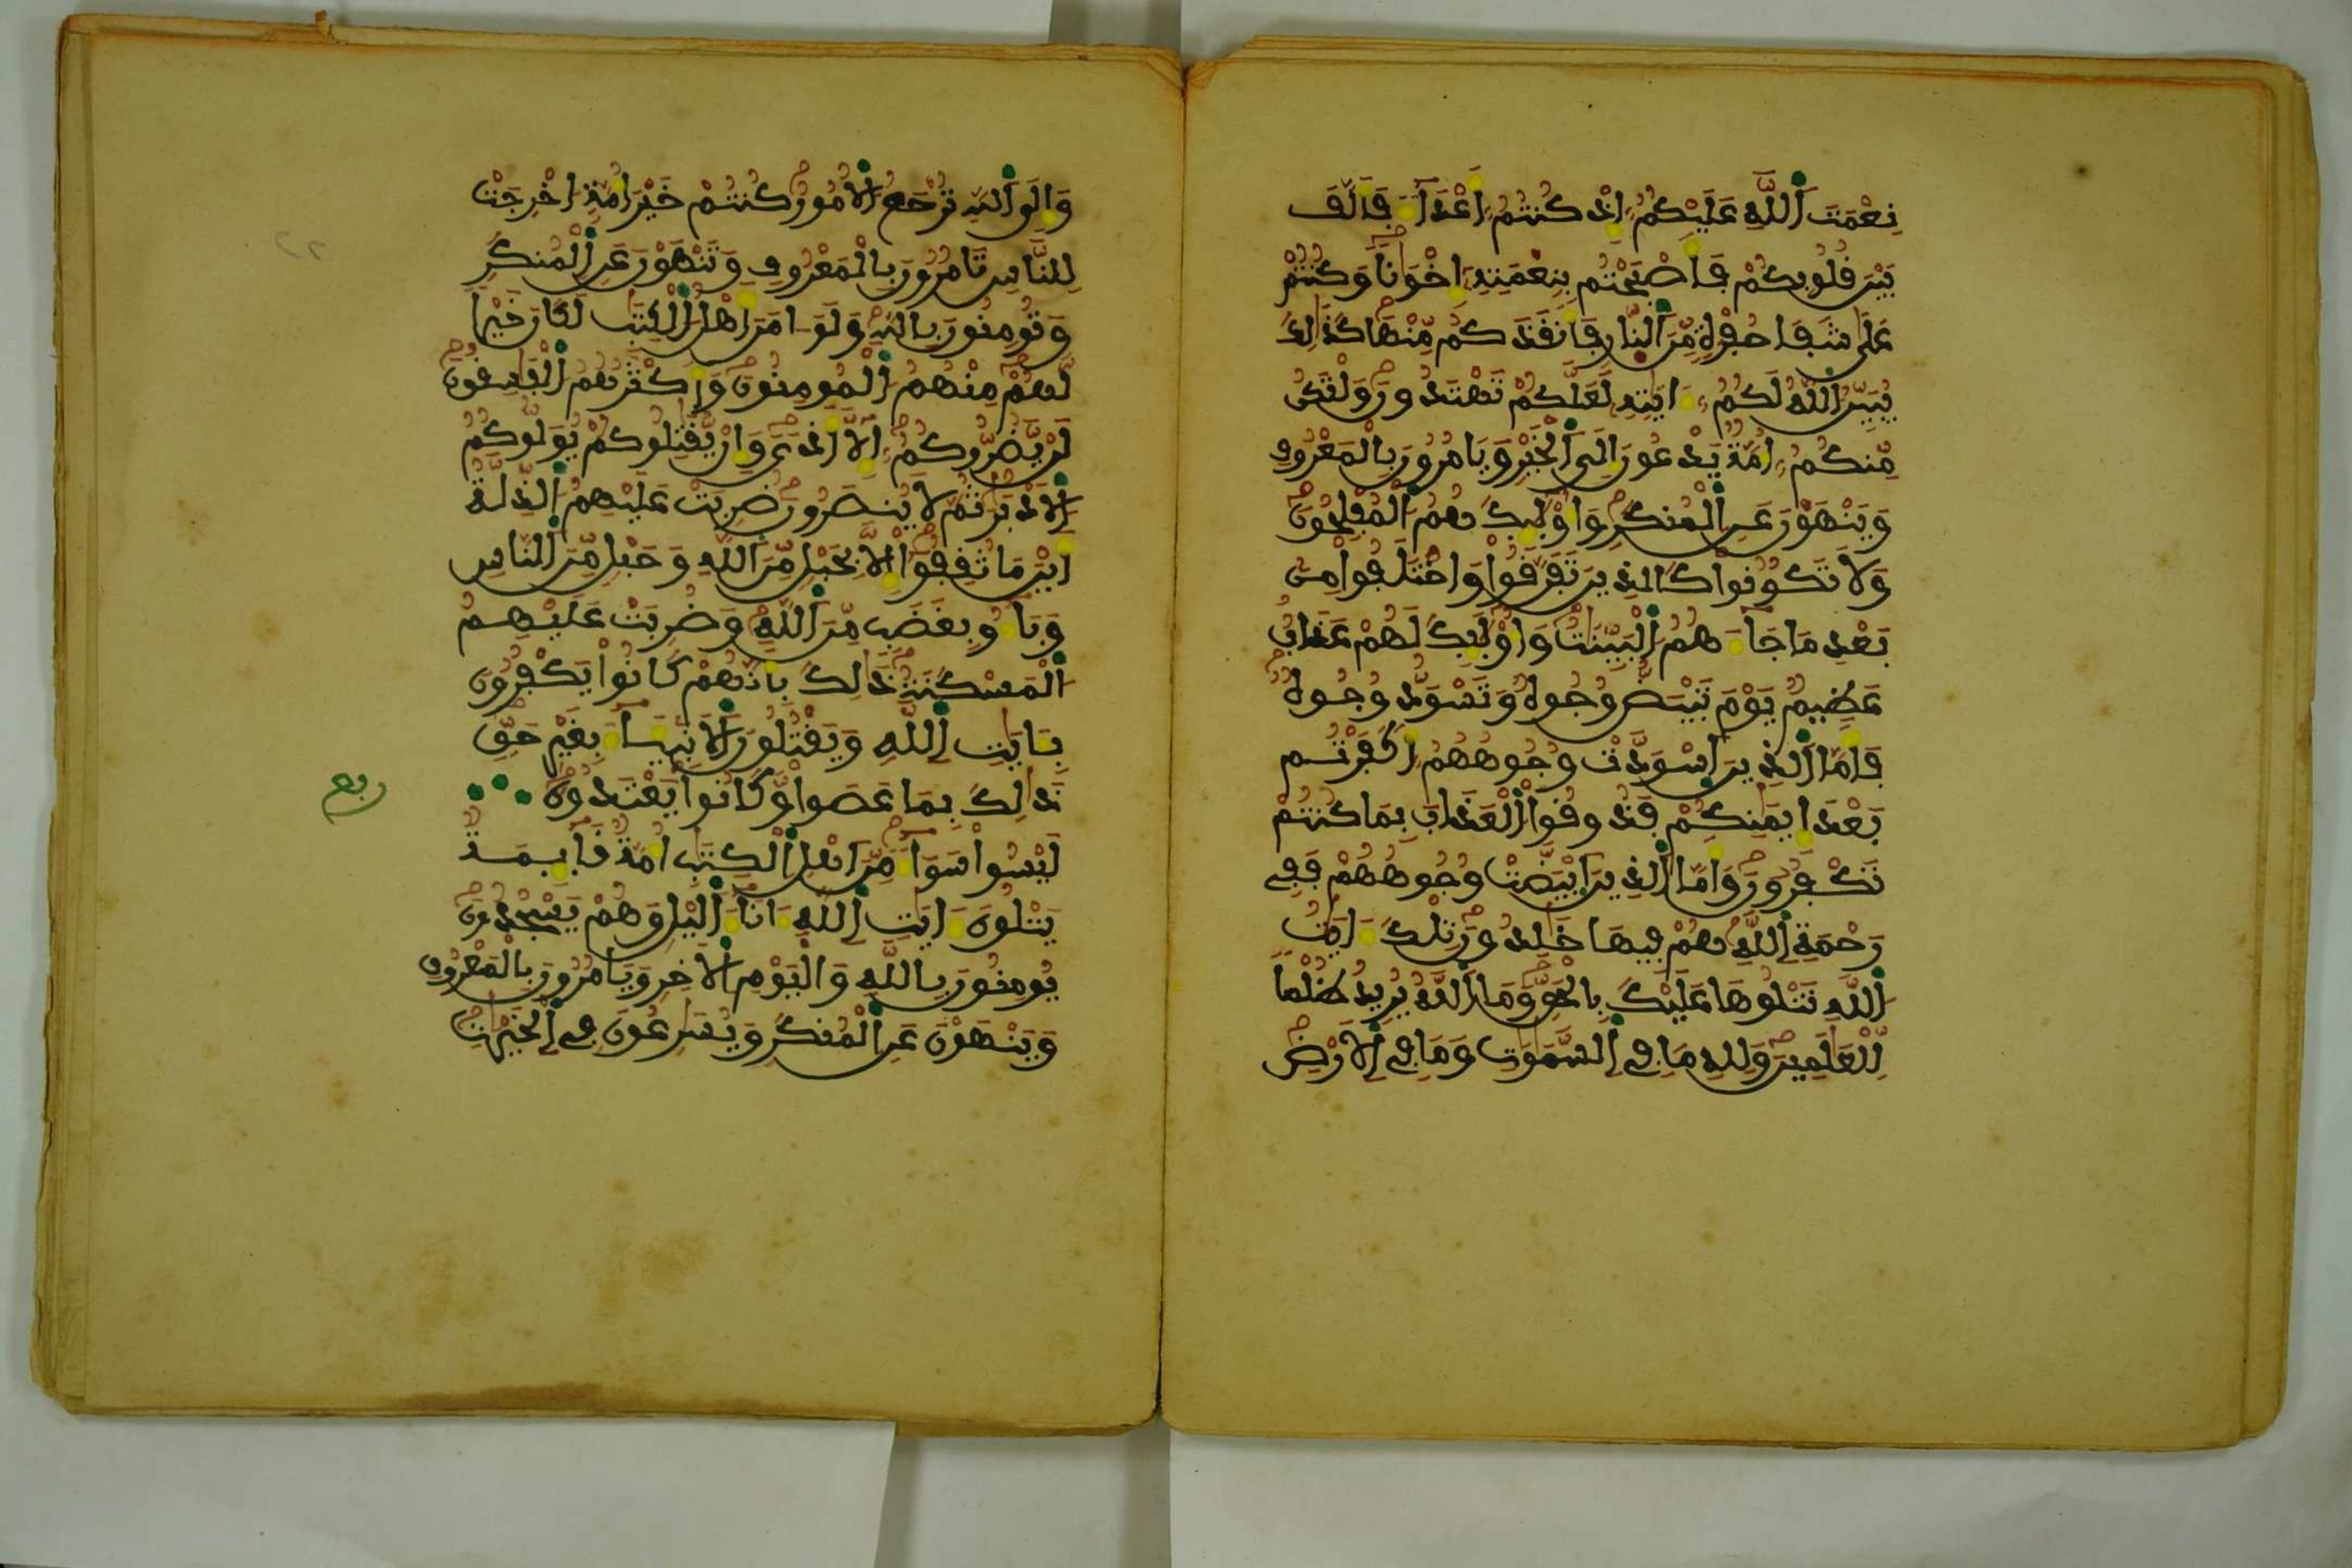 نِعْمَتَ اَللَّهِ عَلَيْكُمُ إِذْ كُنتُمُ أَعْدَآءَ فَأَلَّفَ
بَيْنَ قُلُوبِكُمْ فَأَصْبَحْتُم بِنِعْمَتِهِ إِخْوَٰناً وَكُنتُمْ
عَلَىٰ شَفَا حُفْرَةٍ مِّنَ اَلنَّارِ فَأَنقَذَكُم مِّنْهَا كَذَٰلِكَ
يُبَيِّنُ اُللَّهُ لَكُمُ ءَايَٰتِهِ لَعَلَّكُمْ تَهْتَدُونَ وَلْتَكُن
مِّنكُمُ أُمَّةٌ يَدْعُونَ إِلَى اَلْخَيْرِ وَيَامُرُونَ بِالْمَعْرُوفِ
وَيَنْهَوْنَ عَنِ اِلْمُنكَرِ وَأُوْلَٰئِكَ هُمُ اُلْمُفْلِحُونَ
وَلَا تَكُونُوا كَالذِينَ تَفَرَّقُوا وَاخْتَلَفُوا مِن
بَعْدِ مَا جَآءَهُمُ اُلْبَيِّنَٰتُ وَأُوْلَٰئِكَ لَهُمْ عَذَابٌ
عَظِيمٌ يَوْمَ تَبْيَضُّ وُجُوهٌ وَتَسْوَدُّ وُجُوهٌ
فَأَمَّا اَلذِينَ اَسْوَدَّتْ وُجُوهُهُمُ أَكَفَرْتُم
بَعْدَ إِيمَٰنِكُمْ فَذُوقُوا اُلْعَذَابَ بِمَا كُنتُمْ
تَكْفُرُونَ وَأَمَّا اَلذِينَ اَبْيَضَّتْ وُجُوهُهُمْ فَفِي
رَحْمَةِ اِللَّهِ هُمْ فِيهَا خَٰلِدُونَ تِلْكَ ءَايَٰتُ
اُللَّهِ نَتْلُوهَا عَلَيْكَ بِالْحَقِّ وَمَا اَللَّهُ يُرِيدُ ظُلْماً
لِّلْعَٰلَمِينَ وَلِلهِ مَا فِي اِلسَّمَٰوَٰتِ وَمَا فِي اِلْأَرْضِ
وَإِلَى اَللَّهِ تُرْجَعُ اُلْأُمُورُ كُنتُمْ خَيْرَ أُمَّةٍ أُخْرِجَتْ
لِلنَّاسِ تَامُرُونَ بِالْمَعْرُوفِ وَتَنْهَوْنَ عَنِ اِلْمُنكَرِ
وَتُومِنُونَ بِاللَّهِ وَلَوَ امَنَ أَهْلُ اُلْكِتَٰبِ لَكَانَ خَيْراً
لَّهُمْ مِنْهُمُ اُلْمُومِنُونَ وَأَكْثَرُهُمُ اُلْفَٰسِقُونَ
لَنْ يَّضُرُّوكُمُ إِلَّا أَذىً وَإِنْ يُّقَٰتِلُوكُمْ يُوَلُّوكُمُ
اُلْأَدْبَٰرَ ثُمَّ لَا يُنصَرُونَ ضُرِبَتْ عَلَيْهِمُ اُلذِّلَّةُ
أَيْنَ مَا ثُقِفُوا إِلَّا بِحَبْلٍ مِّنَ اَللَّهِ وَحَبْلٍ مِّنَ اَلنَّاسِ
وَبَآءُو بِغَضَبٍ مِّنَ اَللَّهِ وَضُرِبَتْ عَلَيْهِمُ
اُلْمَسْكَنَةُ ذَٰلِكَ بِأَنَّهُمْ كَانُوا يَكْفُرُونَ
بِـَٔايَٰتِ اِللَّهِ وَيَقْتُلُونَ اَلْأَنۢبِيَآءَ بِغَيْرِ حَقٍّ
ذَٰلِكَ بِمَا عَصَوا وَّكَانُوا يَعْتَدُونَ
ربع
لَيْسُوا سَوَآءً مِّنَ اَهْلِ اِلْكِتَٰبِ أُمَّةٌ قَآئِمَةٌ
يَتْلُونَ ءَايَٰتِ اِللَّهِ ءَانَآءَ اَلَّيْلِ وَهُمْ يَسْجُدُونَ
يُومِنُونَ بِاللَّهِ وَالْيَوْمِ اِلْأَخِرِ وَيَامُرُونَ بِالْمَعْرُوفِ
وَيَنْهَوْنَ عَنِ اِلْمُنكَرِ وَيُسَٰرِعُونَ فِي اِلْخَيْرَٰتِ